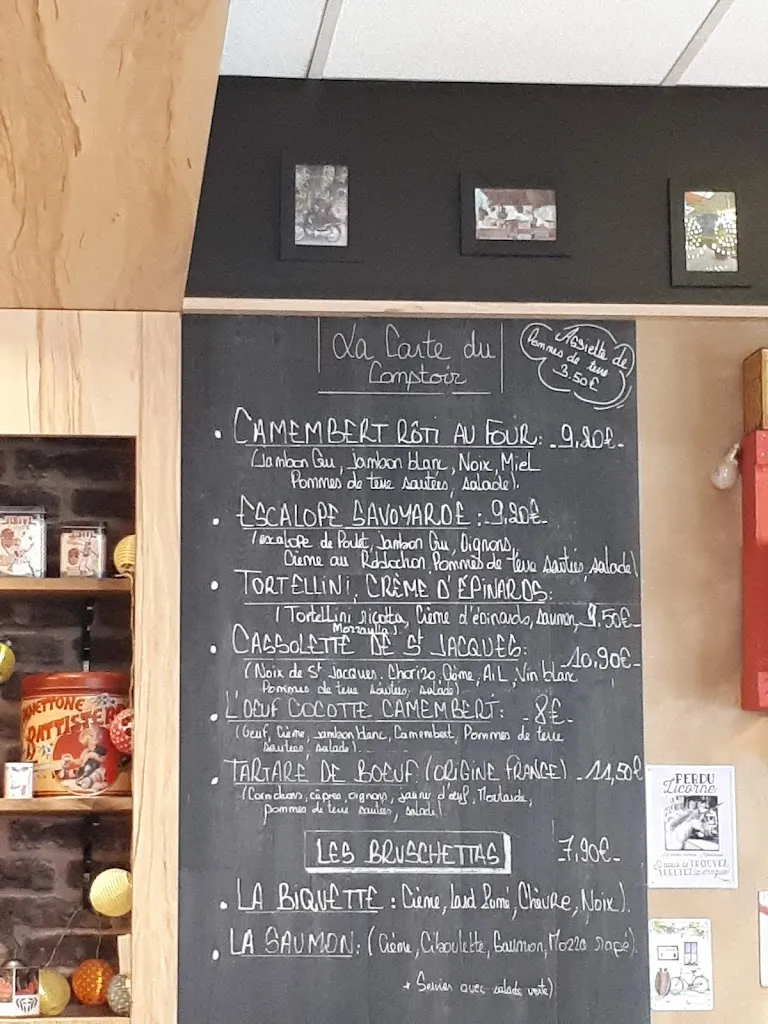 La Carte du
Comptoir
Assiette de
Pommes de terre
3.50€
• CAMEMBERT RÔTI AU FOUR: - 9,20€-
(Jambon Cru, Jambon blanc, Noix, Miel
Pommes de terre sautées, salade).
• ESCALOPE SAVOYARDE : 9,20€
(escalope de Poulet, Jambon Cru, Oignons,
Crème au Réblochon, Pommes de terre sautées, salade)
• TORTELLINI, CRÈME D'ÉPINARDS:
(Tortellini ricotta, Crème d'épinards, saumon, 9.50€-
Mozzarella).
• CASSOLETTE DE St JACQUES: -10,90€-
(Noix de St Jacques, Chorizo, Crème, Ail, Vin blanc
Pommes de terre sautées, salade)
• L'OEUF COCOTTE CAMEMBERT: - 8€-
(Oeuf, Crème, Jambon blanc, Camembert, Pommes de terre
sautées, salade).
• TARTARE DE BOEUF (ORIGINE FRANCE) - 11,50€
(Cornichons, câpres, oignons, jaune d'oeuf, Moutarde,
pommes de terre sautées, salade).
LES BRUSCHETTAS - 7,90€-
• LA BIQUETTE : Crème, Lard Fumé, Chèvre, Noix).
• LA SAUMON: (Crème, Ciboulette, Saumon, Mozza rapé).
* Servies avec salade verte)
PANNETTONE
BATTISTERO
PERDU
Licorne